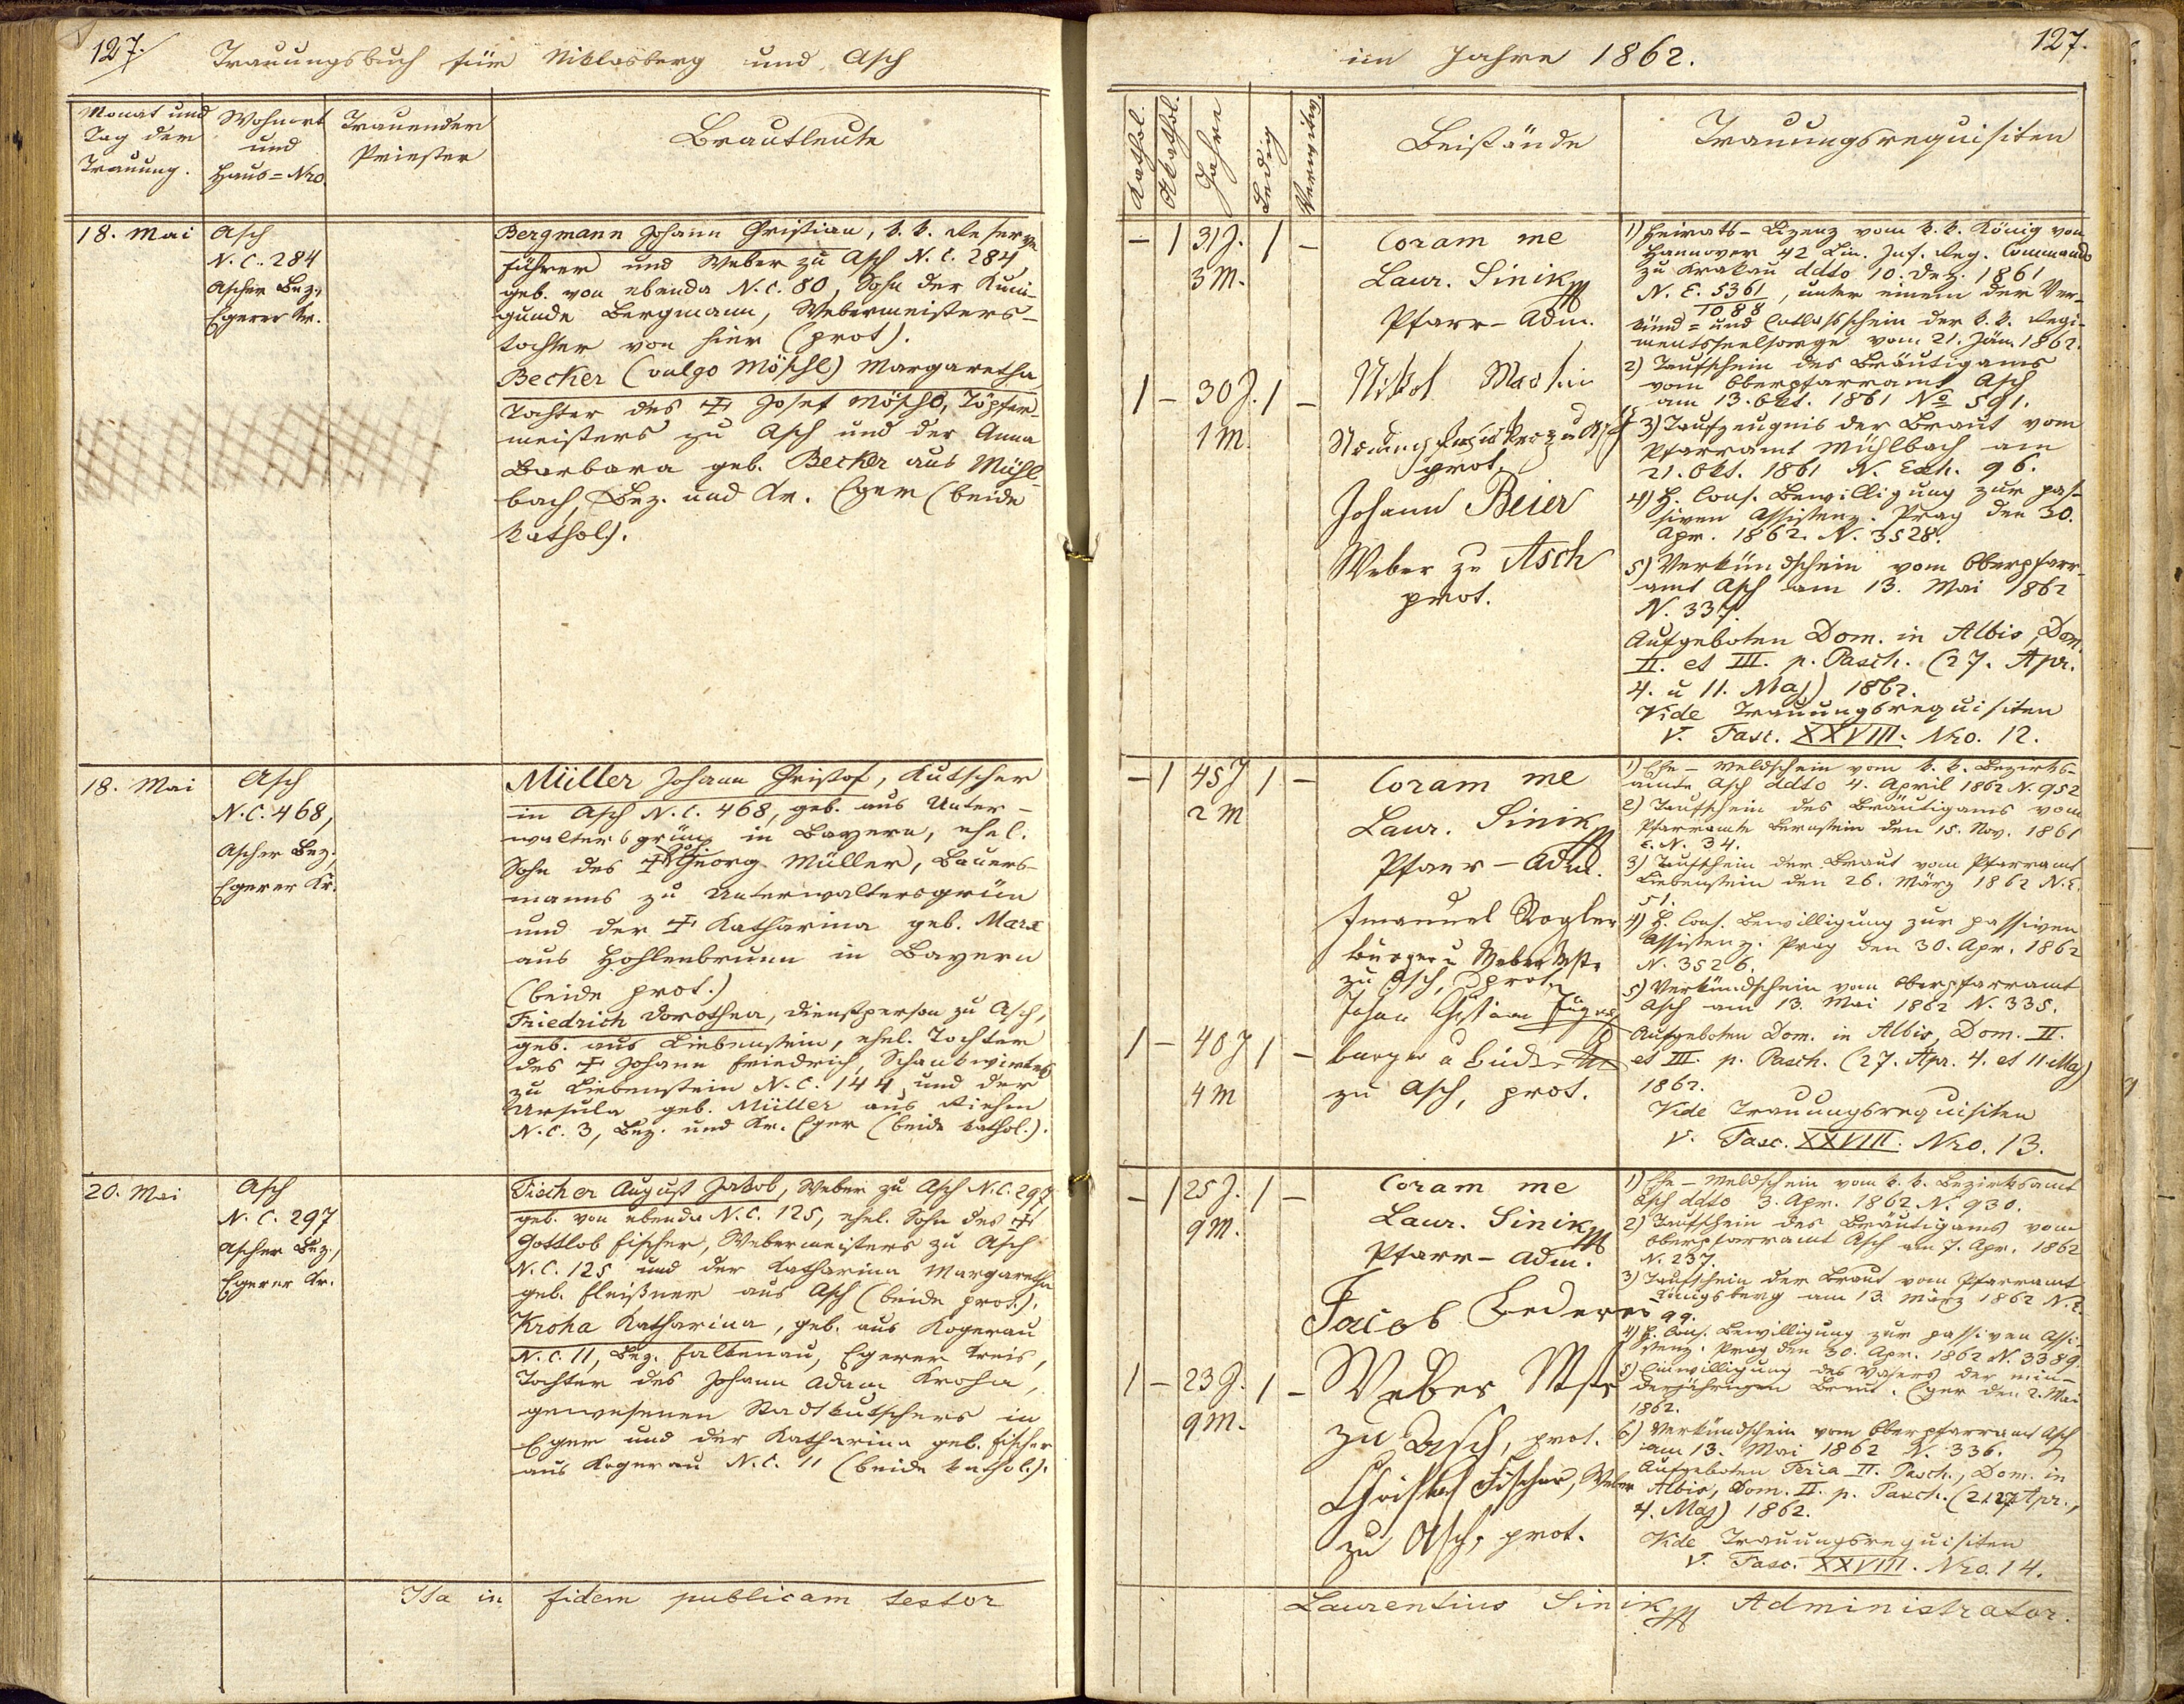 127.
Trauungsbuch für Niklasberg und Asch
Monat und
Tag der
Trauung.
Wohnort
und
Haus=Nro.
Trauender
Priester
Brautleute
18. Mai
Asch
N. C. 284
Ascher Bez.,
Egerer Kr.
Bergmann Johann Christian, k. k. Reserve
führer und Weber zu Asch N. C. 284,
geb. von ebenda N. C. 80, Sohn der Kuni-
gunde Bergmann, Webermeisters-
tochter von hier (prot).
Becker (vulgo Möschl) Margaretha
Tochter des ☩ Josef Möschl, Töpfer-
meisters zu Asch und der Anna
Barbara geb. Becker aus Mühl-
bach, Bez. und Kr. Eger (beide
kathol.).
18. Mai
Asch
N. C. 468,
Ascher Bez.,
Egerer Kr.
Müller Johann Christof, Kutscher
in Asch N. C. 468, geb. aus Unter-
waltersgrün in Bayern, ehel.
Sohn des ☩ Georg Müller, Bauers-
manns zu Unterwaltersgrün
und der ☩ Katharina geb. Marx
aus Hohlenbrunn in Bayern
(beide prot.)
Friedrich Dorothea, Dienstperson zu Asch,
geb. aus Liebenstein, ehel. Tochter
des ☩ Johann Friedrich, Schankwirtes
zu Liebenstein N. C. 144 und der
Ursula geb. Müller aus Riehm
N. C. 3, Bez. und Kr. Eger (beide kathol.).
20. Mai
Asch
N. C. 297
Ascher Bez.,
Egerer Kr.
Fischer August Jakob, Weber zu Asch N. C. 297
geb. von ebenda N. C. 125, ehel. Sohn des ☩
Gottlob Fischer, Webermeisters zu Asch
N. C. 125 und der Katharina Margaretha
geb. Fleißner aus Asch (beide prot.).
Kroha Katharina, geb. aus Kogerau
N. C. 11, Bez. Falkenau, Egerer Kreis,
Tochter des Johann Adam Kroha,
gewesenen Stadtkutschers in
Eger und der Katharina geb. Fischer
aus Kogerau N. C. 11 (beide kathol.).
Ita in fidem publicam testor
im Jahre 1862.
127.
Kathol.
Akathol.
Jahre
Ledig
Verwitw.
Beistände
Trauungsrequisiten
– 1 31 J. 1 –
3 M.
1 – 30 J. 1 –
1 M.
Coram me
Laur. Sinik
Pfarr-Adm.
Nikol Martin
zu Asch
prot.
Johann Beier
Weber zu Asch
prot.
1) Heirats-Lizenz vom k. k. König von
Hannover 42 Lin. Inf. Reg. Commando
zu Krakau ddto 10. Dez. 1861
N. E. 5361/1088, unter einem der Ver-
künd= und Entlaßschein der k. k. Regi-
mentsseelsorge vom 21. Jän. 1862.
2) Taufschein des Bräutigams
vom Oberpfarramt Asch
am 13. Okt. 1861 No 591.
3) Taufzeugnis der Braut vom
Pfarramt Mühlbach am
21. Okt. 1861 N. Exh. 96.
4) H. Cons. Bewilligung zur pas-
siven Assistenz. Prag den 30.
Apr. 1862. N. 3528.
5) Verkündschein vom Oberpfarr-
amt Asch am 13. Mai 1862
N. 337.
Aufgeboten Dom. in Albis, Dom.
II. et III. p. Pasch. (27. Apr.
4. u 11. Maj) 1862.
Vide Trauungsrequisiten
V. Fasc. XXVIII. Nro. 12.
– 1 45 J 1 –
2 M
1 – 40 J 1 –
4 M
Coram me
Laur. Sinik
Pfarr-Adm.
Imanuel Kogler
Bürger u Weber Mstr
zu Asch, prot.
Johan Christian
Bürger u
zu Asch, prot.
1) Ehe-Meldschein vom k. k. Bezirks-
amte Asch ddto 4. April 1862 N. 952
2) Taufschein des Bräutigams vom
Pfarramte Bernstein den 15. Nov. 1861
E. N. 34.
3) Taufschein der Braut vom Pfarramt
Liebenstein den 26. März 1862 N. E.
51.
4) H. Cons. Bewilligung zur passiven
Assistenz. Prag den 30. Apr. 1862
N. 3526.
5) Verkündschein vom Oberpfarramt
Asch am 13. Mai 1862 N. 335.
Aufgeboten Dom. in Albis, Dom. II.
et III. p. Pasch. (27. Apr. 4. et 11. Maj)
1862.
Vide Trauungsrequisiten
V. Fasc. XXVIII. Nro. 13.
– 1 25 J. 1 –
9 M.
1 – 23 J. 1 –
9 M.
Coram me
Laur. Sinik
Pfarr-Adm.
Jacob Lederer
Weber Mstr
zu Asch, prot.
Christof Fischer, Weber
zu Asch, prot.
1) Ehe-Meldschein vom k. k. Bezirksamt
Asch ddto 3. Apr. 1862 N. 930.
2) Taufschein des Bräutigams vom
Oberpfarramt Asch am 7. Apr. 1862
N. 237.
3) Taufschein der Braut vom Pfarramt
Königsberg am 13. März 1862 N. E.
99.
4) H. Cons. Bewilligung zur passiven Assi-
stenz. Prag den 30. Apr. 1862 N. 3389.
5) Einwilligung des Vaters der min-
derjährigen Braut. Eger den 2. Mai
1862.
6) Verkündschein vom Oberpfarramt Asch
am 13. Mai 1862 N. 336.
Aufgeboten Feria II. Pasch., Dom. in
Albis, Dom. II. p. Pasch. (21. 27 Apr.,
4. Maj) 1862.
Vide Trauungsrequisiten
V. Fasc. XXVIII. Nro. 14.
Laurentius Sinik Administrator.